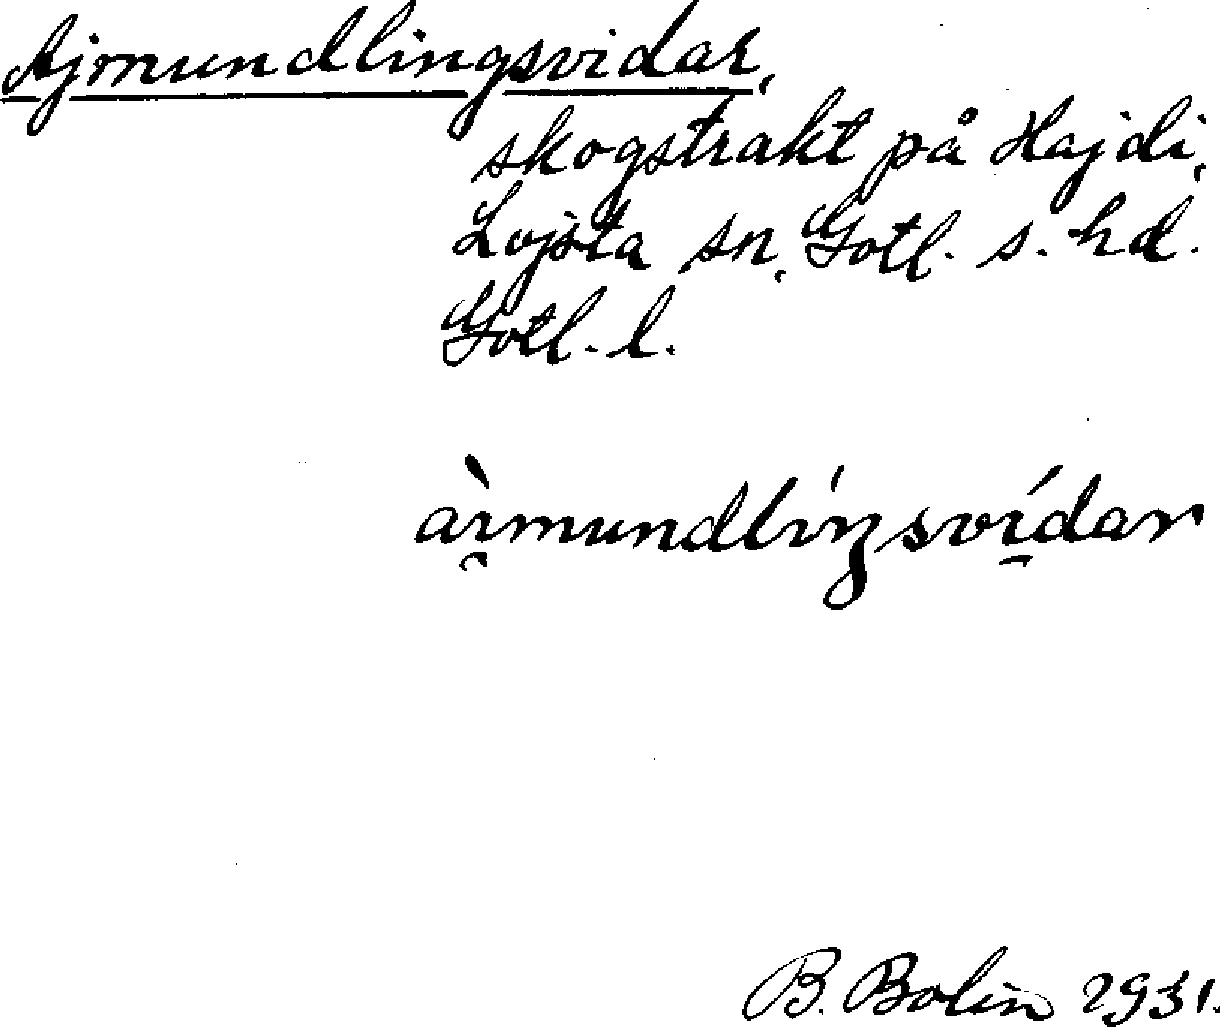 Ajmundlingsvidar,
skogstrakt på Hajdi,
Lojsta sn, Gotl. s. hd.
Gotl. l.
ài̯mundlıŋsví̯dar
B. Bolin 1931.